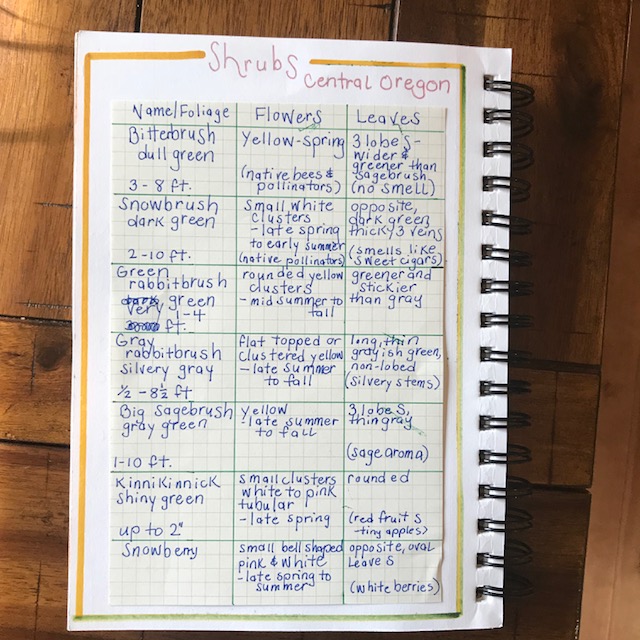 Shrubs
Central Oregon
Name/Foliage
Flowers
Leaves
Bitterbrush
dull green
3-8 ft.
Yellow-spring
(native bees &
pollinators)
3 lobes-
wider &
greener than
sagebrush
(no smell)
Snowbrush
dark green
2-10 ft.
small white
clusters
-late spring
to early summer
(native pollinators)
opposite,
dark green
thick, 3 veins
(smells like
sweet cigars)
Green
rabbitbrush
very green
1-4
ft.
rounded yellow
clusters
-mid summer to
fall
greener and
stickier
than gray
Gray
rabbitbrush
silvery gray
½-8½ ft
flat topped or
clustered yellow
-late summer
to fall
long, thin
grayish green,
non-lobed
(silvery stems)
Big Sagebrush
gray green
1-10 ft.
yellow
-late summer
to fall
3 lobes,
thin gray
(sage aroma)
Kinnikinnick
shiny green
up to 2"
small clusters
white to pink
tubular
-late spring
rounded
(red fruits
-tiny apples)
Snowberry
small bell shaped
pink & white
-late spring to
summer
opposite, oval
leaves
(white berries)